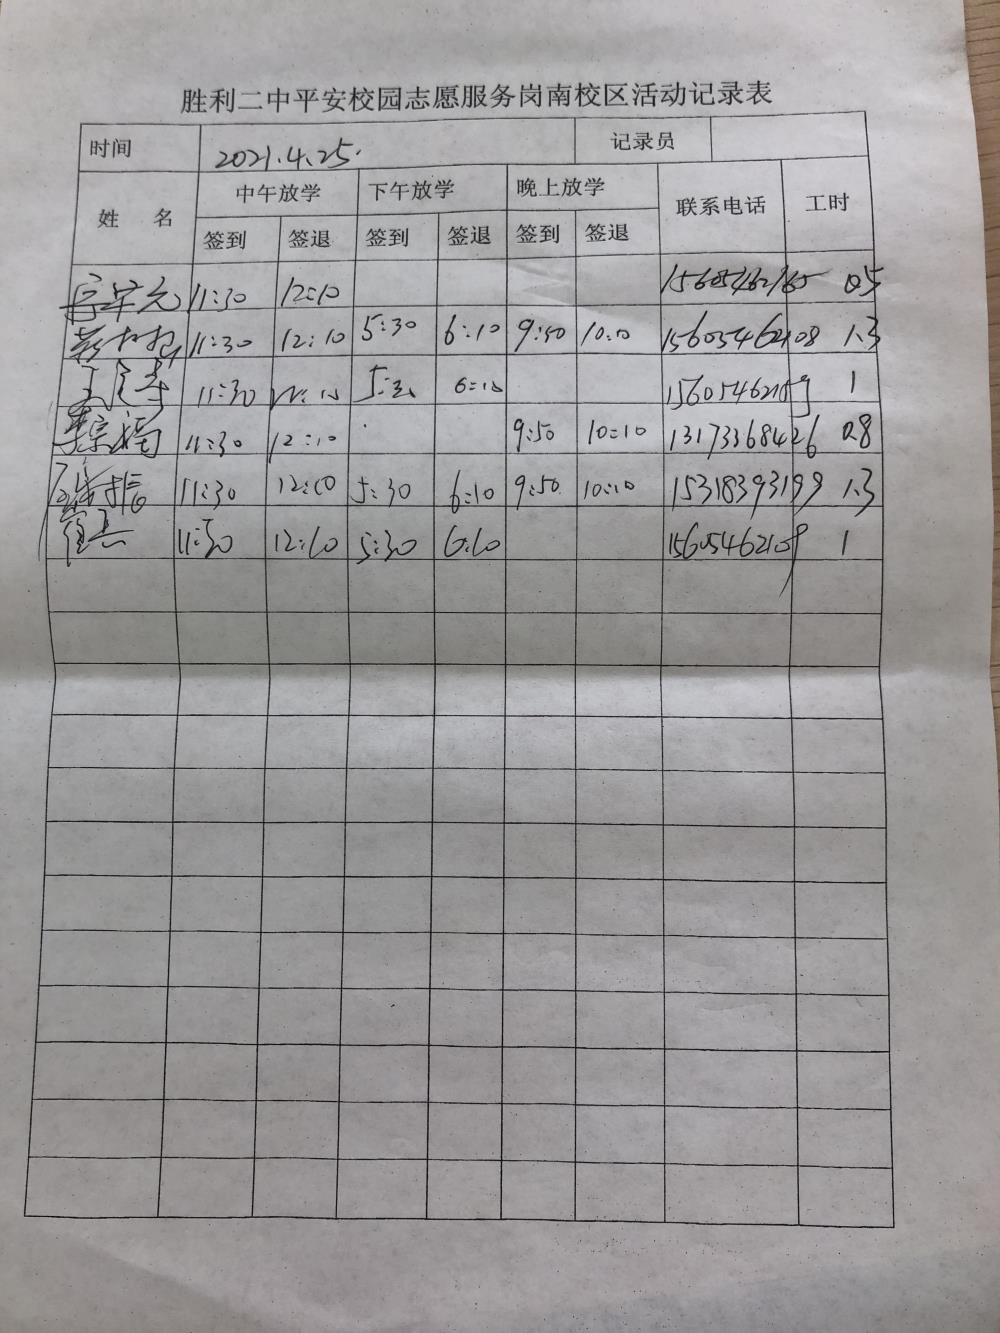 胜利二中平安校园志愿服务岗南校区活动记录表
时间 2021.4.25. 记录员
姓 名 中午放学 下午放学 晚上放学 联系电话 工时
签到 签退 签到 签退 签到 签退
11:30 12:10 0.5
11:30 12:10 5:30 6:10 9:50 10:10 15605462108 1.3
11:30 6:10 1
11:30 12:10 9:50 10:10 13173368426 0.8
11:30 12:10 5:30 6:10 9:50 10:10 15318393199 1.3
11:30 12:10 5:30 6:10 15605462109 1